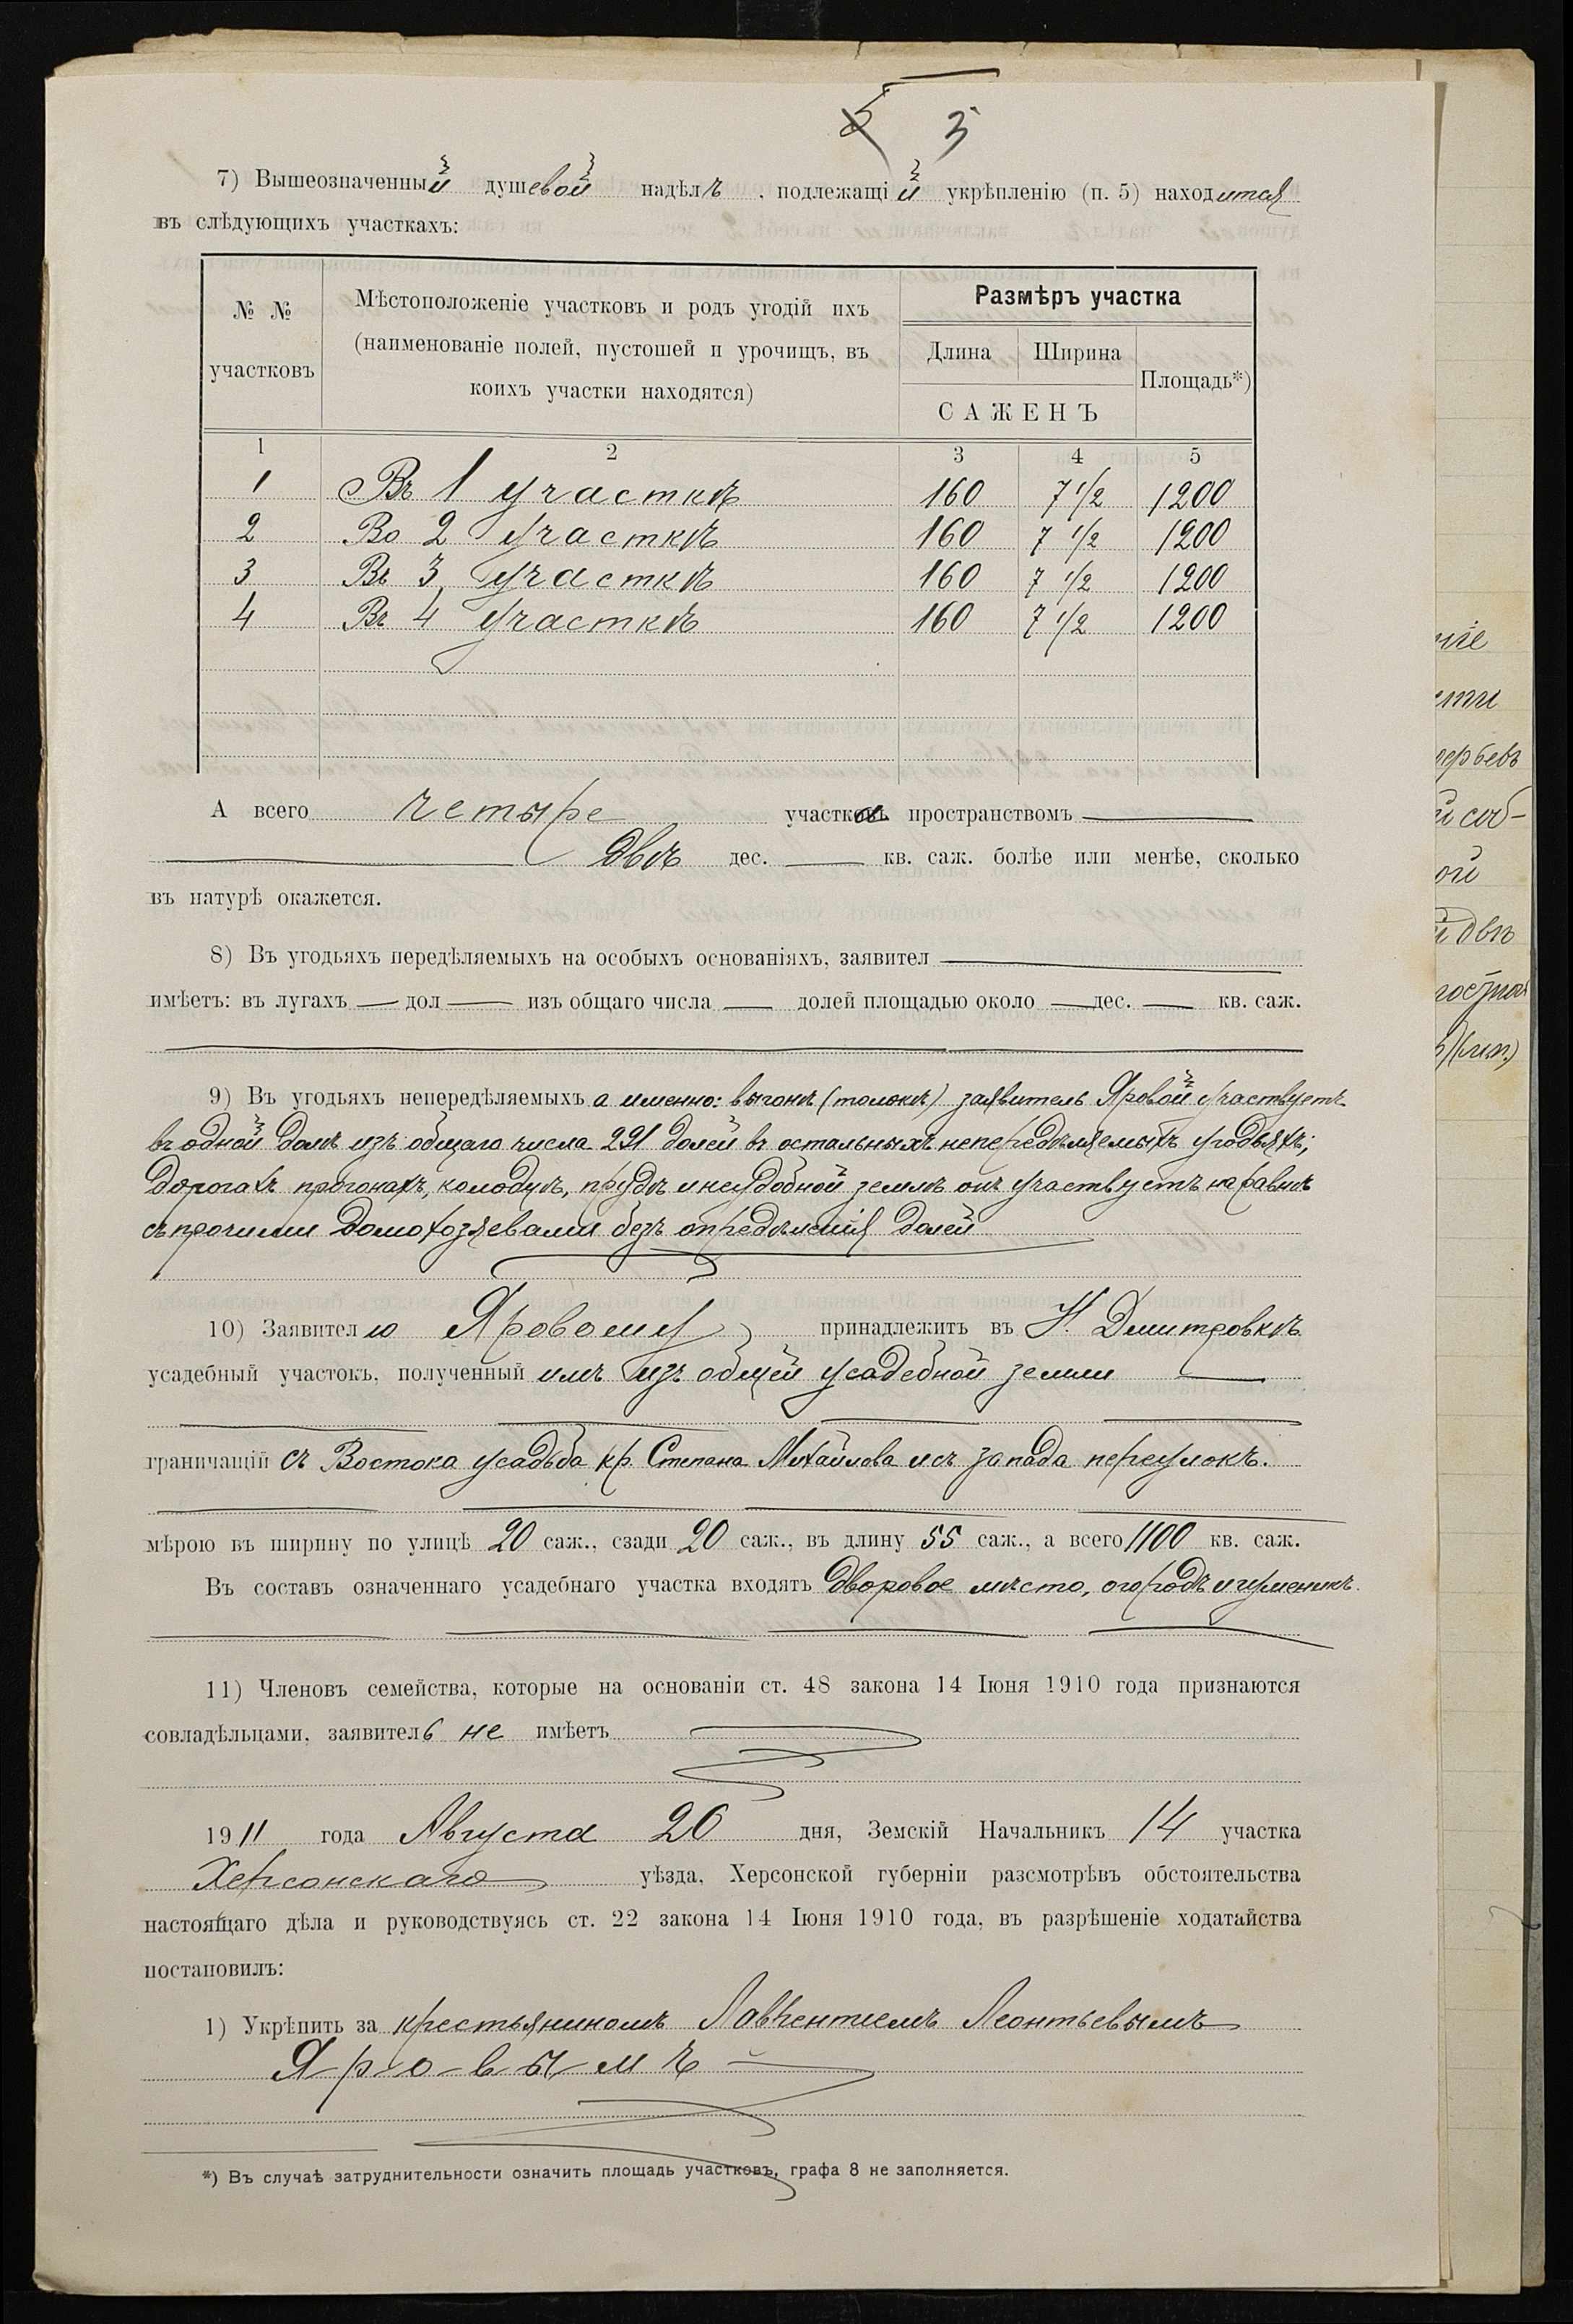 5 3
7) Вышеозначенный душевой надѣлъ , подлежащій укрѣпленію (п. 5) находится
въ слѣдующихъ участкахъ:
№ № участковъ
Мѣстоположеніе участковъ и родъ угодій ихъ
(наименованіе полей, пустошей и урочищъ, въ
коихъ участки находятся)
Размѣръ участка
Длина Ширина Площадь*)
САЖЕНЪ
1 2 3 4 5
1 Въ 1 участкѣ 160 7 1/2 1200
2 Во 2 участкѣ 160 7 1/2 1200
3 Въ 3 участкѣ 160 7 1/2 1200
4 Въ 4 участкѣ 160 7 1/2 1200
А всего четыре участка пространствомъ
двѣ дес. — кв. саж. болѣе или менѣе, сколько
въ натурѣ окажется.
8) Въ угодьяхъ передѣляемыхъ на особыхъ основаніяхъ, заявител —
имѣетъ: въ лугахъ — дол — изъ общаго числа — долей площадью около — дес. — кв. саж.
9) Въ угодьяхъ непередѣляемыхъ а именно: выгонѣ (толокѣ) заявитель Яровой участвуетъ
въ одной долѣ изъ общаго числа 291 долей въ остальныхъ непередѣляемыхъ угодьяхъ;
дорогахъ прогонахъ, колодцѣ, прудѣ и неудобной землѣ онъ участвуетъ наравнѣ
съ прочими домохозяевами безъ опредѣленія долей
10) Заявителю Яровому принадлежитъ въ Н. Дмитровкѣ
усадебный участокъ, полученный имъ изъ общей усадебной земли —
граничащій съ Востока усадьба кр. Степана Михайлова и съ запада переулокъ.
мѣрою въ ширину по улицѣ 20 саж., сзади 20 саж., въ длину 55 саж., а всего 1100 кв. саж.
Въ составъ означеннаго усадебнаго участка входятъ дворовое мѣсто, огородъ и гуменикъ.
11) Членовъ семейства, которые на основаніи ст. 48 закона 14 Іюня 1910 года признаются
совладѣльцами, заявитель не имѣетъ
1911 года Августа 20 дня, Земскій Начальникъ 14 участка
Херсонскаго уѣзда, Херсонской губерніи разсмотрѣвъ обстоятельства
настоящаго дѣла и руководствуясь ст. 22 закона 14 Іюня 1910 года, въ разрѣшеніе ходатайства
постановилъ:
1) Укрѣпить за крестьяниномъ Лаврентиемъ Леонтьевымъ
Яровымъ
*) Въ случаѣ затруднительности означить площадь участковъ, графа 8 не заполняется.